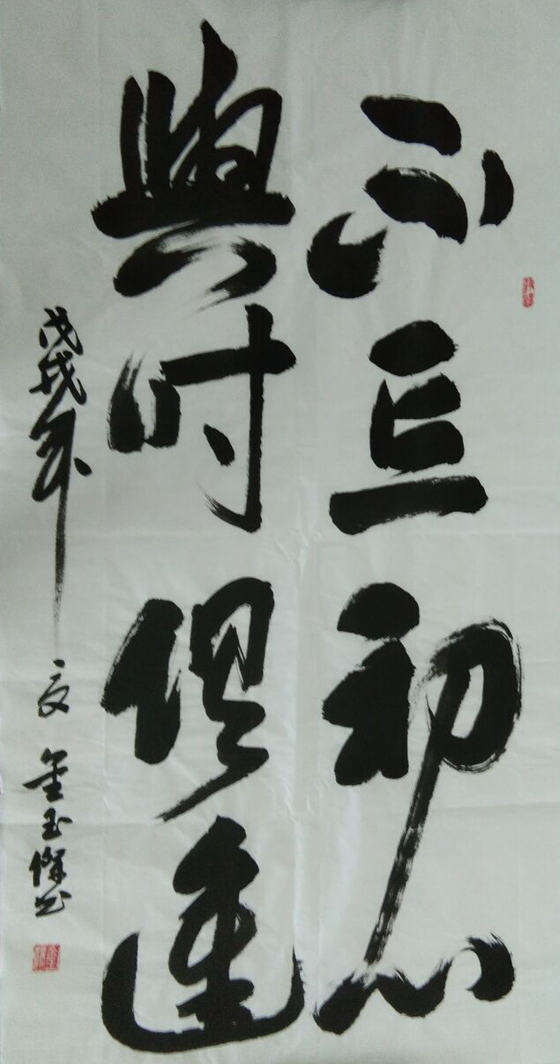 不忘初心
與时俱進
戊戌年夏金玉傑书